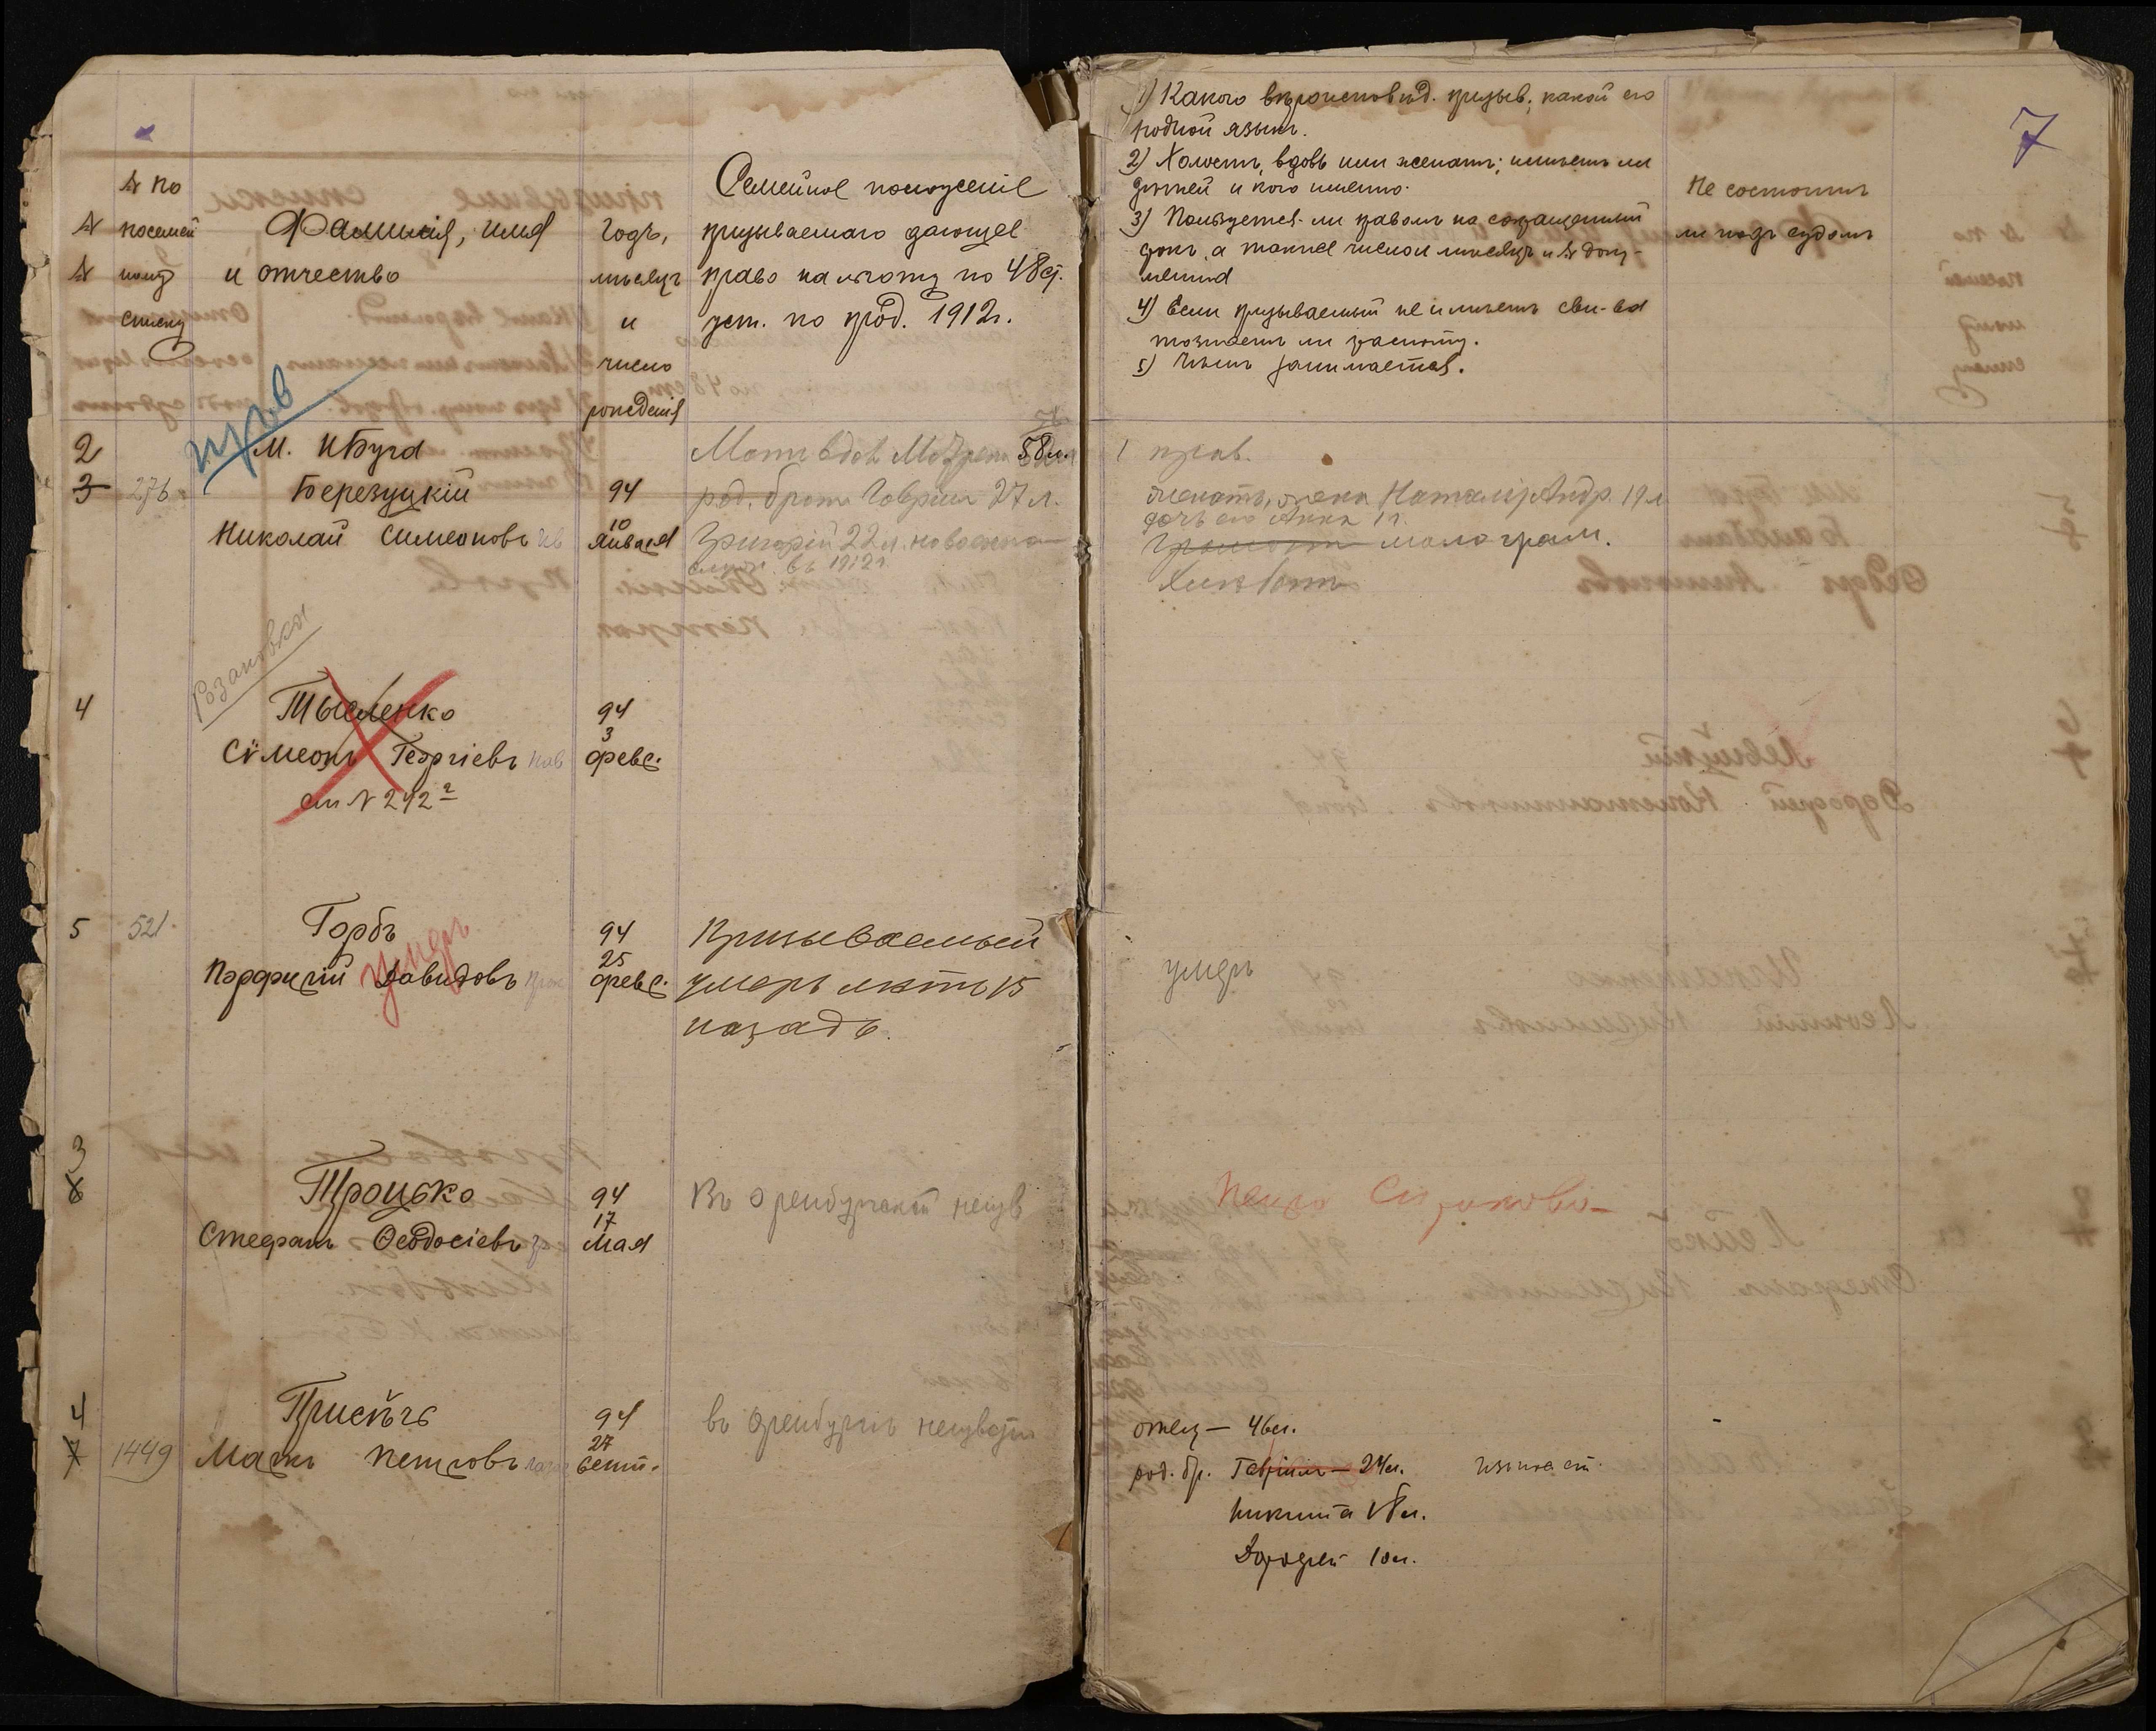 № по
№ посемей Фамилія, имя Годъ,
№ ному и отчество мѣсяцъ
списку и
число
рожденія
Семейное положеніе
призываемаго дающее
право на льготу по 48 ст.
уст. по прод. 1912 г.
1) Какого вѣроисповѣд. призыв., какой его
родной языкъ.
2) Холостъ, вдовъ или женатъ; имѣетъ ли
дѣтей и кого именно.
3) Пользуется-ли правомъ на сокращенный
срокъ, а также число мѣсяцъ и № доку-
мента
4) Если призываемый не имѣетъ сви-ва
то знаетъ ли грамоту.
5) Чѣмъ занимается.
Не состоитъ
ли подъ судомъ
7
2 М. Ивуга
3 276 Березуцкій 94
Николай Симеоновъ 10 Января
Мать вдов 58 л.
род. братъ Гавріил 27 л.
Григорій 22 л. на военной
служ. въ 1912 г.
1 прав.
женатъ, жена Наталія Андр. 19 л
дочь его Анна 1 г.
Грамот мало грам.
Хлѣбоп
Розановка
4 Тысленко 94
Сѵмеонъ Георгіевъ 3 февр.
см № 242
5 521. Горбъ 94
Порфирій Давидовъ 25 февр.
умеръ
Призываемый
умеръ лѣтъ 15
назадъ.
умеръ
3
6 Троцько 94
Стефанъ Ѳеодосіевъ 17 Мая
Въ Оренбургской
4 Присѣчь 94
7 1449 Маркъ Петровъ 27 Сент.
въ Оренбургѣ
отец — 46 л.
род. бр. Гавріилъ — 24 л.
Никита 18 л.
Дорофей 10 л.